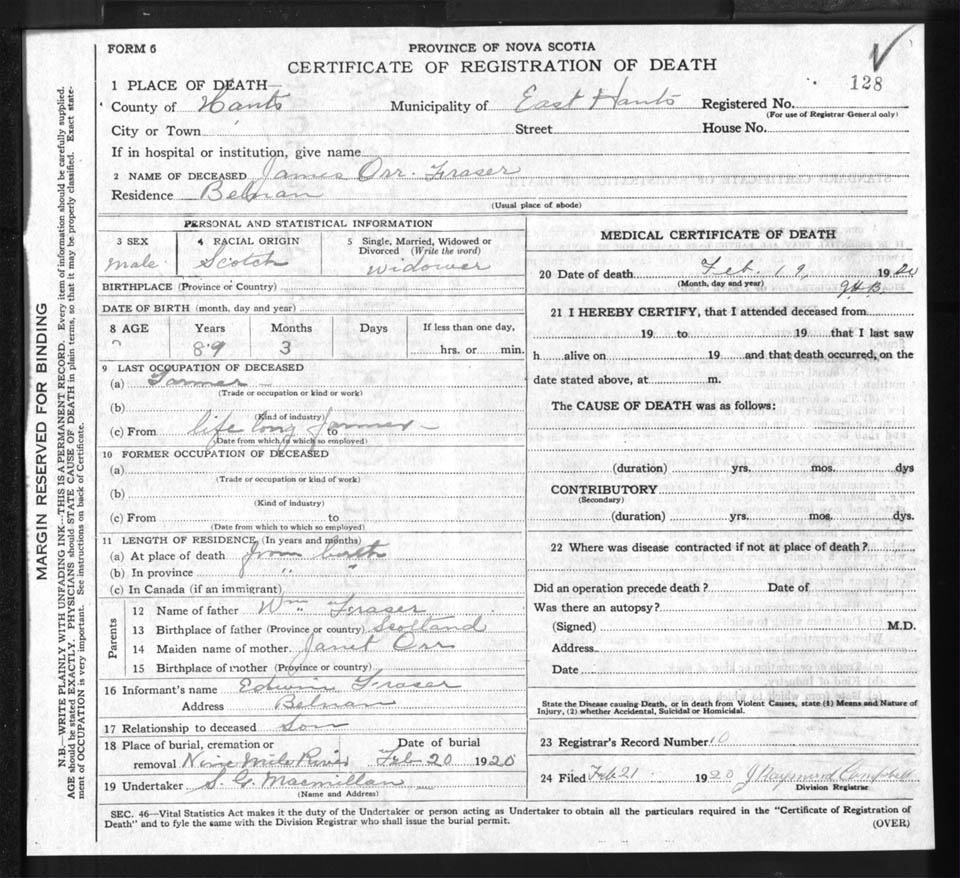 FORM 6
PROVINCE OF NOVA SCOTIA
CERTIFICATE OF REGISTRATION OF DEATH
128
1 PLACE OF DEATH—
County of Hants Municipality of East Hants Registered No.
(For use of Registrar General only)
City or Town Street House No.
If in hospital or institution, give name
2 NAME OF DECEASED James Orr. Fraser
Residence Belnan
(Usual place of abode)
PERSONAL AND STATISTICAL INFORMATION
3 SEX 4 RACIAL ORIGIN 5 Single, Married, Widowed or Divorced (Write the word)
Male Scotch Widower
BIRTHPLACE (Province or Country)
DATE OF BIRTH (month, day and year)
8 AGE Years Months Days If less than one day,
89 3 hrs. or min.
9 LAST OCCUPATION OF DECEASED
(a) Farmer
(Trade or occupation or kind or work)
(b)
(Kind of industry)
(c) From life long farmer to
(Date from which to which so employed)
10 FORMER OCCUPATION OF DECEASED
(a)
(Trade or occupation or kind of work)
(b)
(Kind of industry)
(c) From to
(Date from which to which so employed)
11 LENGTH OF RESIDENCE (In years and months)
(a) At place of death from birth
(b) In province " "
(c) In Canada (if an immigrant)
Parents
12 Name of father Wm Fraser
13 Birthplace of father (Province or country) Scotland
14 Maiden name of mother Janet Orr
15 Birthplace of mother (Province or country)
16 Informant's name Edwin Fraser
Address Belnan
17 Relationship to deceased Son
18 Place of burial, cremation or removal Nine Mile River Date of burial Feb 20 1920
19 Undertaker S. G. Macmillan
(Name and Address)
MEDICAL CERTIFICATE OF DEATH
20 Date of death Feb. 19 1920
(Month, day and year)
21 I HEREBY CERTIFY, that I attended deceased from
19 to 19 that I last saw
h alive on 19 and that death occurred, on the
date stated above, at m.
The CAUSE OF DEATH was as follows:
(duration) yrs. mos. dys
CONTRIBUTORY
(Secondary)
(duration) yrs. mos. dys.
22 Where was disease contracted if not at place of death?
Did an operation precede death? Date of
Was there an autopsy?
(Signed) M.D.
Address
Date
State the Disease causing Death, or in death from Violent Causes, state (1) Means and Nature of
Injury, (2) whether Accidental, Suicidal or Homicidal.
23 Registrar's Record Number 10
24 Filed Feb 21 1920 J Raymond Campbell
Division Registrar
SEC. 46—Vital Statistics Act makes it the duty of the Undertaker or person acting as Undertaker to obtain all the particulars required in the "Certificate of Registration of
Death" and to fyle the same with the Division Registrar who shall issue the burial permit.
(OVER)
MARGIN RESERVED FOR BINDING
N.B.—WRITE PLAINLY WITH UNFADING INK—THIS IS A PERMANENT RECORD. Every item of information should be carefully supplied.
AGE should be stated EXACTLY. PHYSICIANS should STATE CAUSE OF DEATH in plain terms, so that it may be properly classified. Exact state-
ment of OCCUPATION is very important. See instructions on back of Certificate.